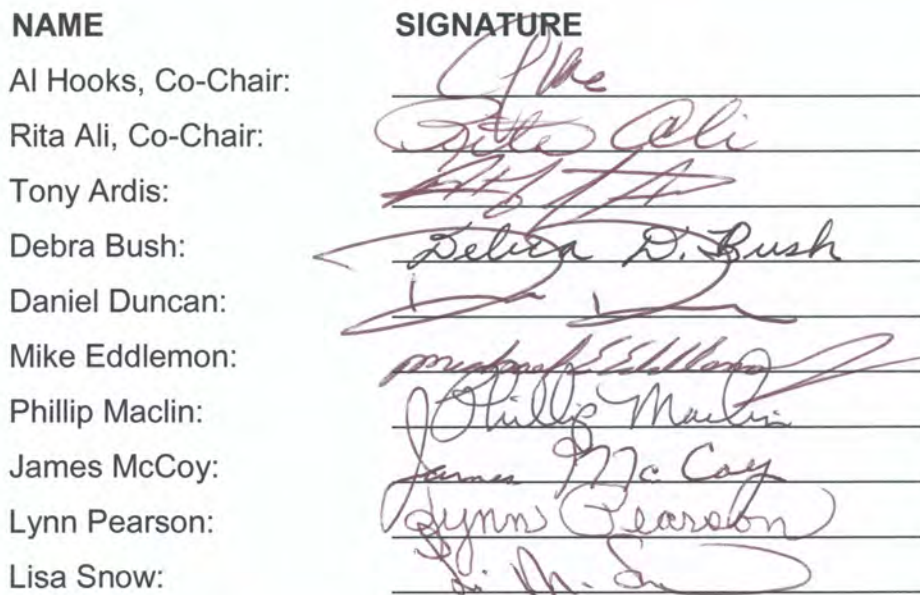 NAME SIGNATURE
Al Hooks, Co-Chair:
Rita Ali, Co-Chair: Rita Ali
Tony Ardis:
Debra Bush: Debra D. Bush
Daniel Duncan:
Mike Eddlemon:
Phillip Maclin: Phillip Maclin
James McCoy: James McCoy
Lynn Pearson: Lynn Pearson
Lisa Snow: